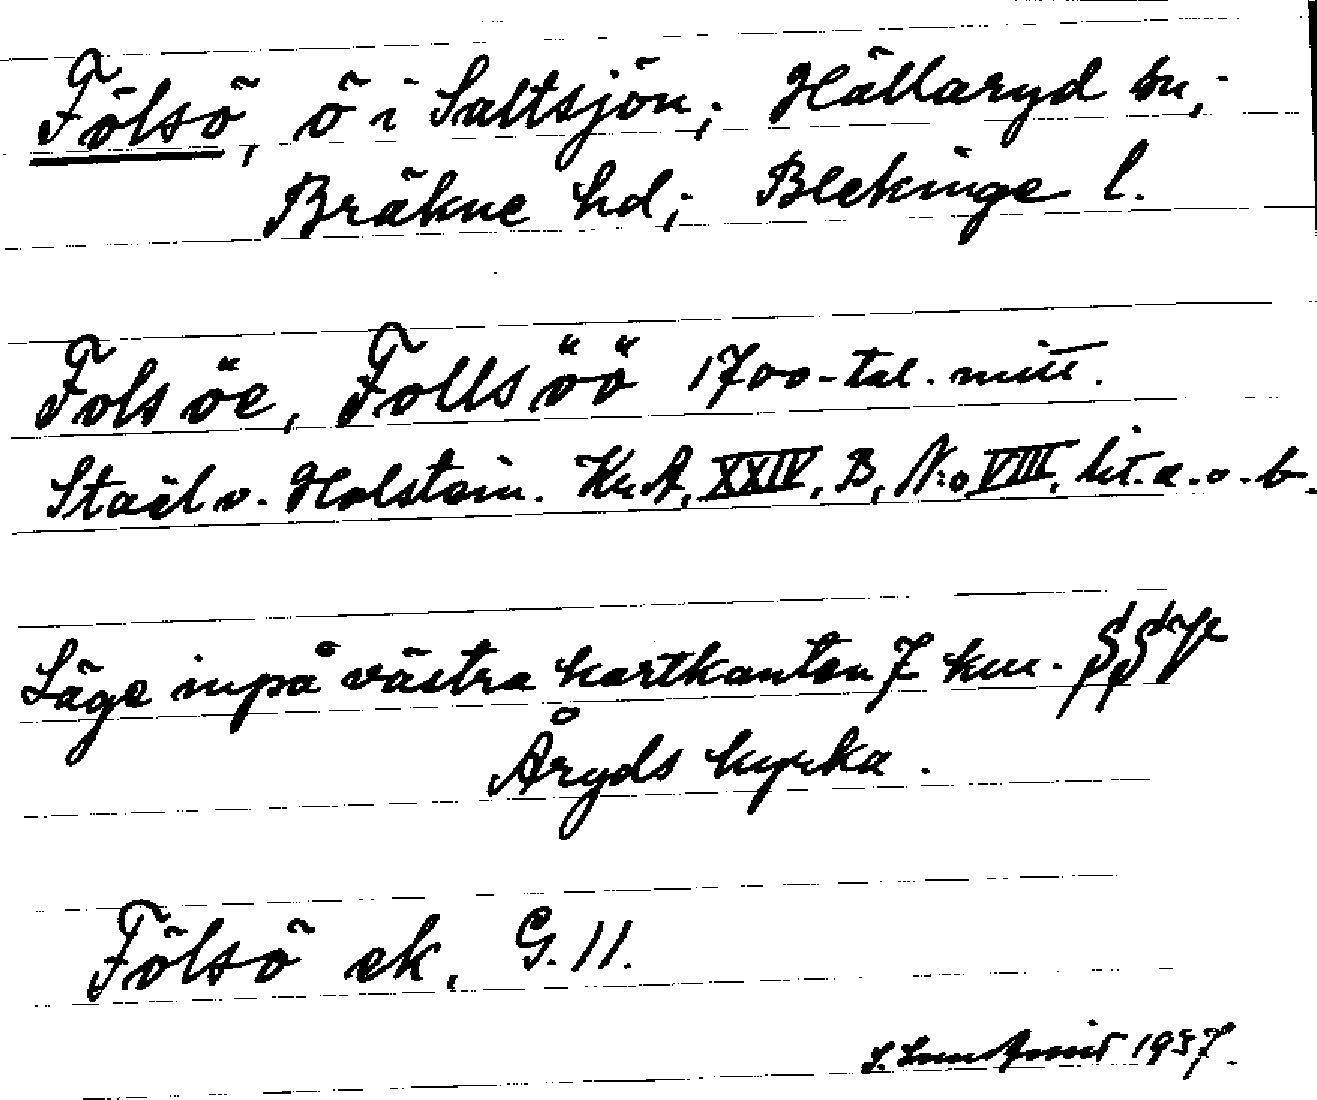 Fölsö, ö i Saltsjön; Hällaryd sn;
Bräkne hd; Blekinge l.
Fols öe, Follsöö 1700-tal. mitt.
Stael v. Holstein. Kr.A. XXIV, B, N:o VIII, lit. a. o. b.
Läge inpå västra kartkanten 7 km. SSV
Åryds kyrka.
Fölsö ek. G. 11.
1937